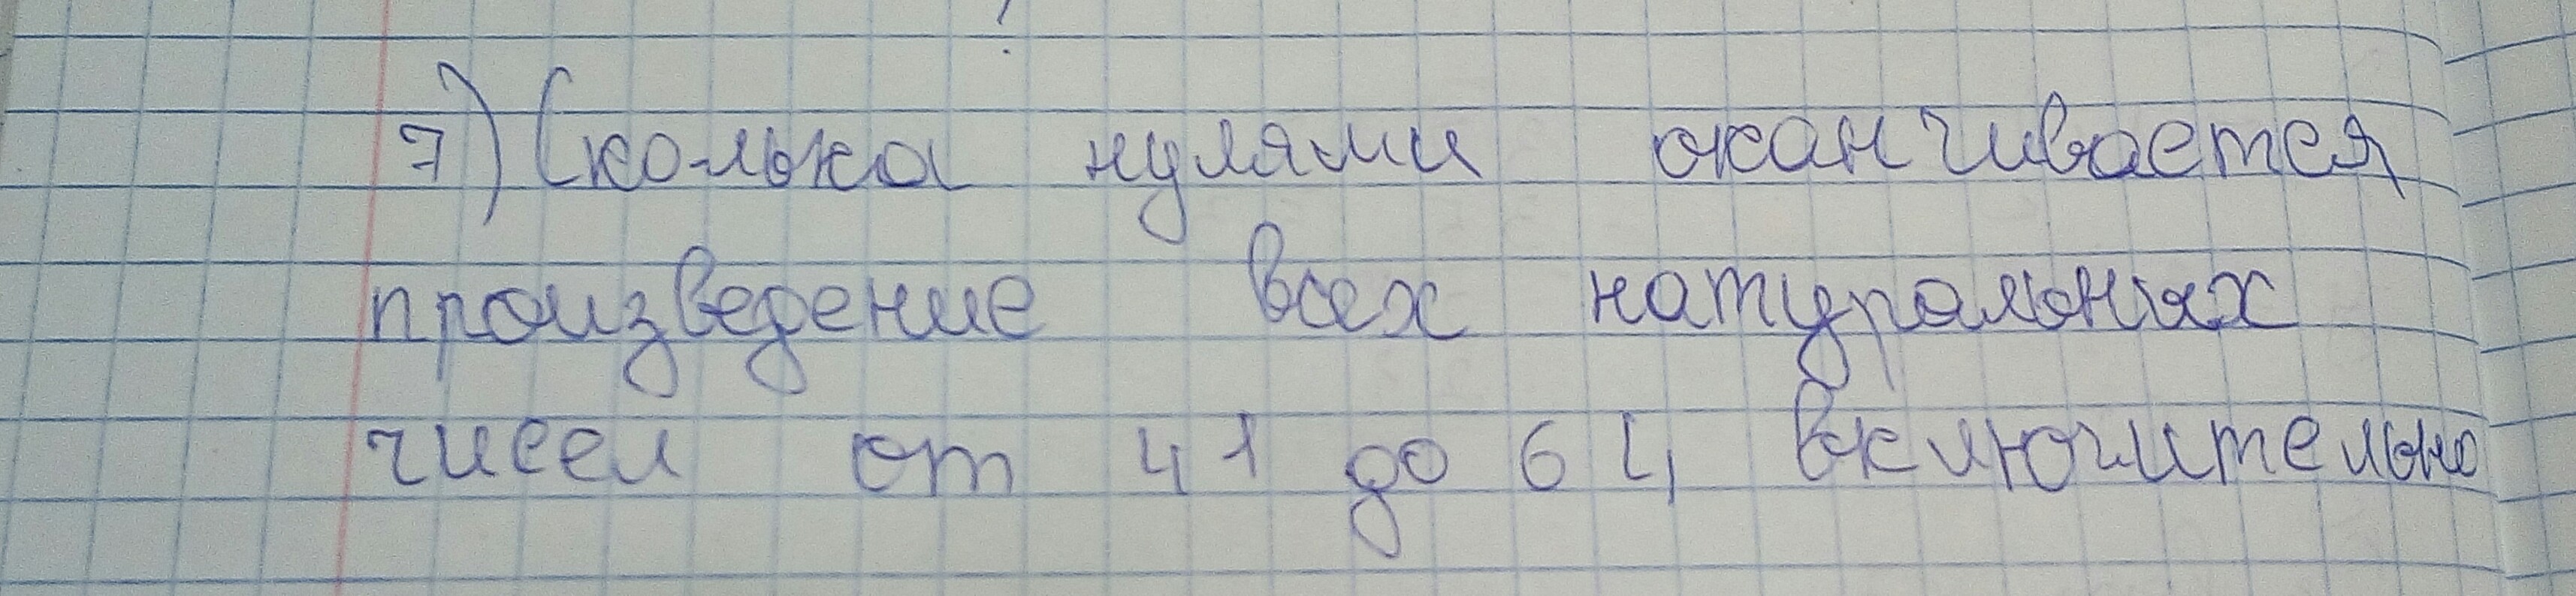 7) Сколька нулями оканчивается
произведение всех натуральных
чисел от 41 до 64 включительно